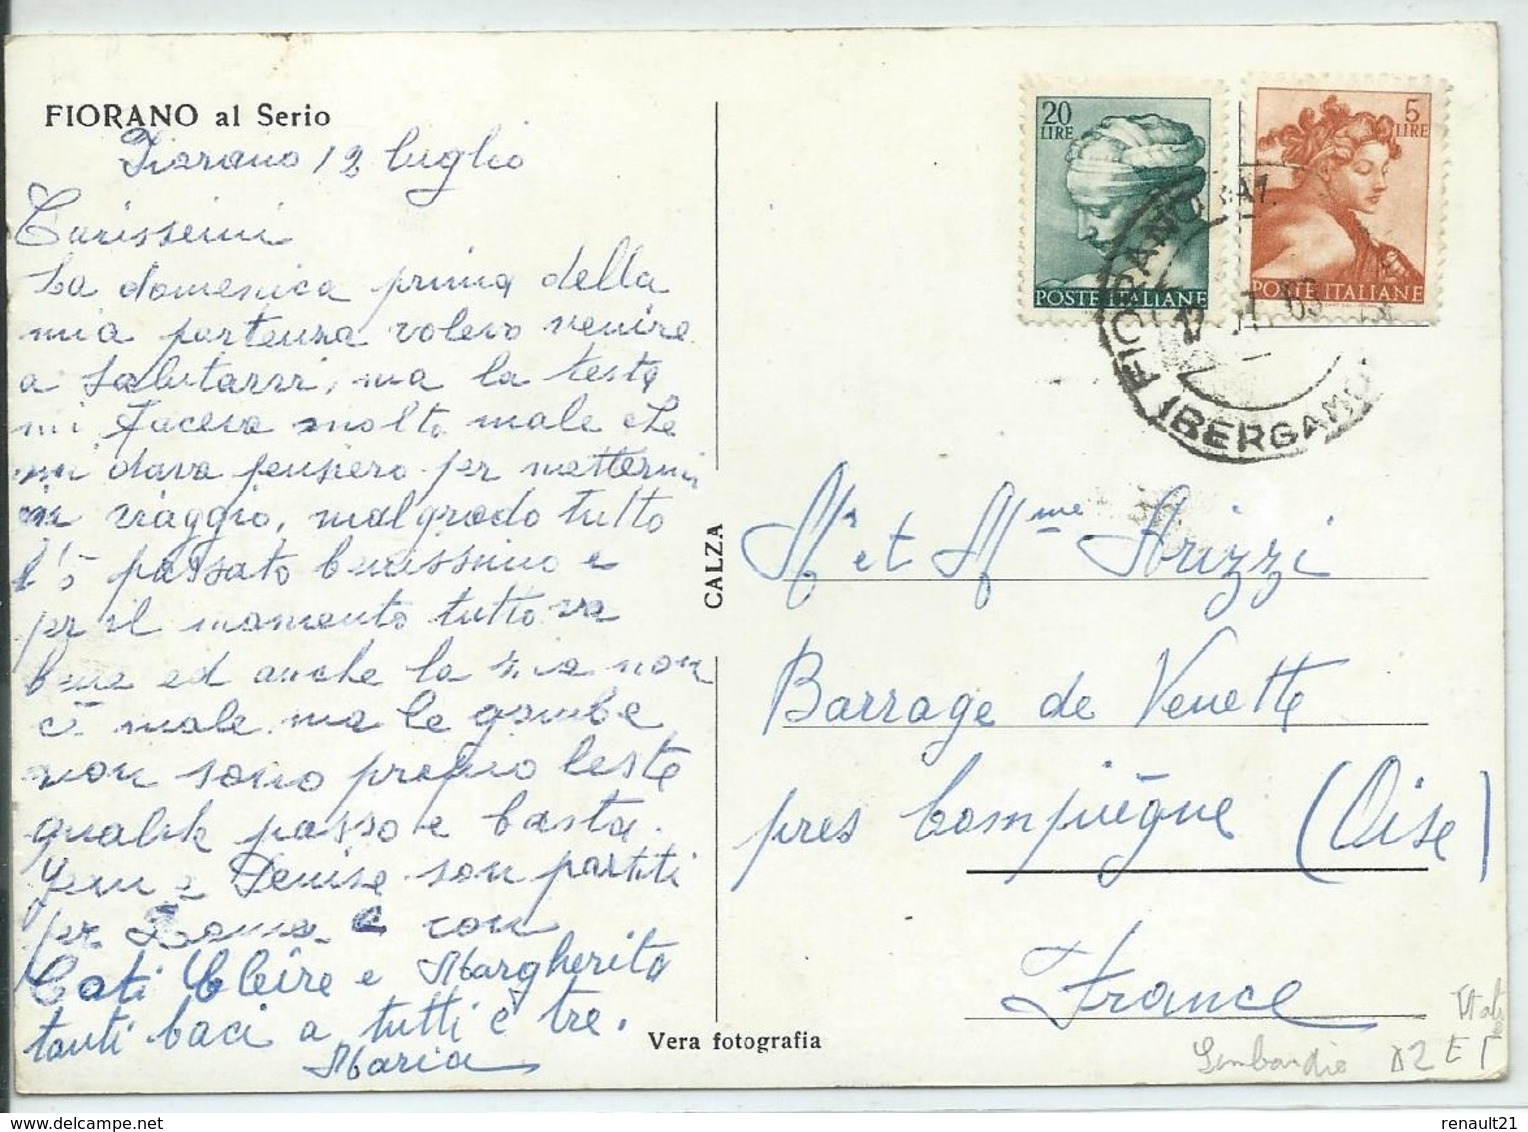 FIORANO al Serio
Fiorano 12 luglio
Carissimi
La domenica prima della
mia partenza volevo venire
a salutarvi, ma la testa
mi faceva molto male che
mi dava pensiero per mettermi
in viaggio, malgrado tutto
l'ò passato benissimo e
per il momento tutto va
bene ed anche la zia non
c'è male ma le gambe
non sono proprio leste
qualche passo e basta.
e Denise son partiti
per Roma e con
Cati Cleire e Margherita
tanti baci a tutti e tre.
Maria
CALZA
Vera fotografia
20
LIRE
POSTE ITALIANE
5
LIRE
POSTE ITALIANE
FIORANO
(BERGAMO)
Mr et Mme Arizzi
Barrage de Venette
pres Compiègne (Oise)
France
Lombardie
renault21